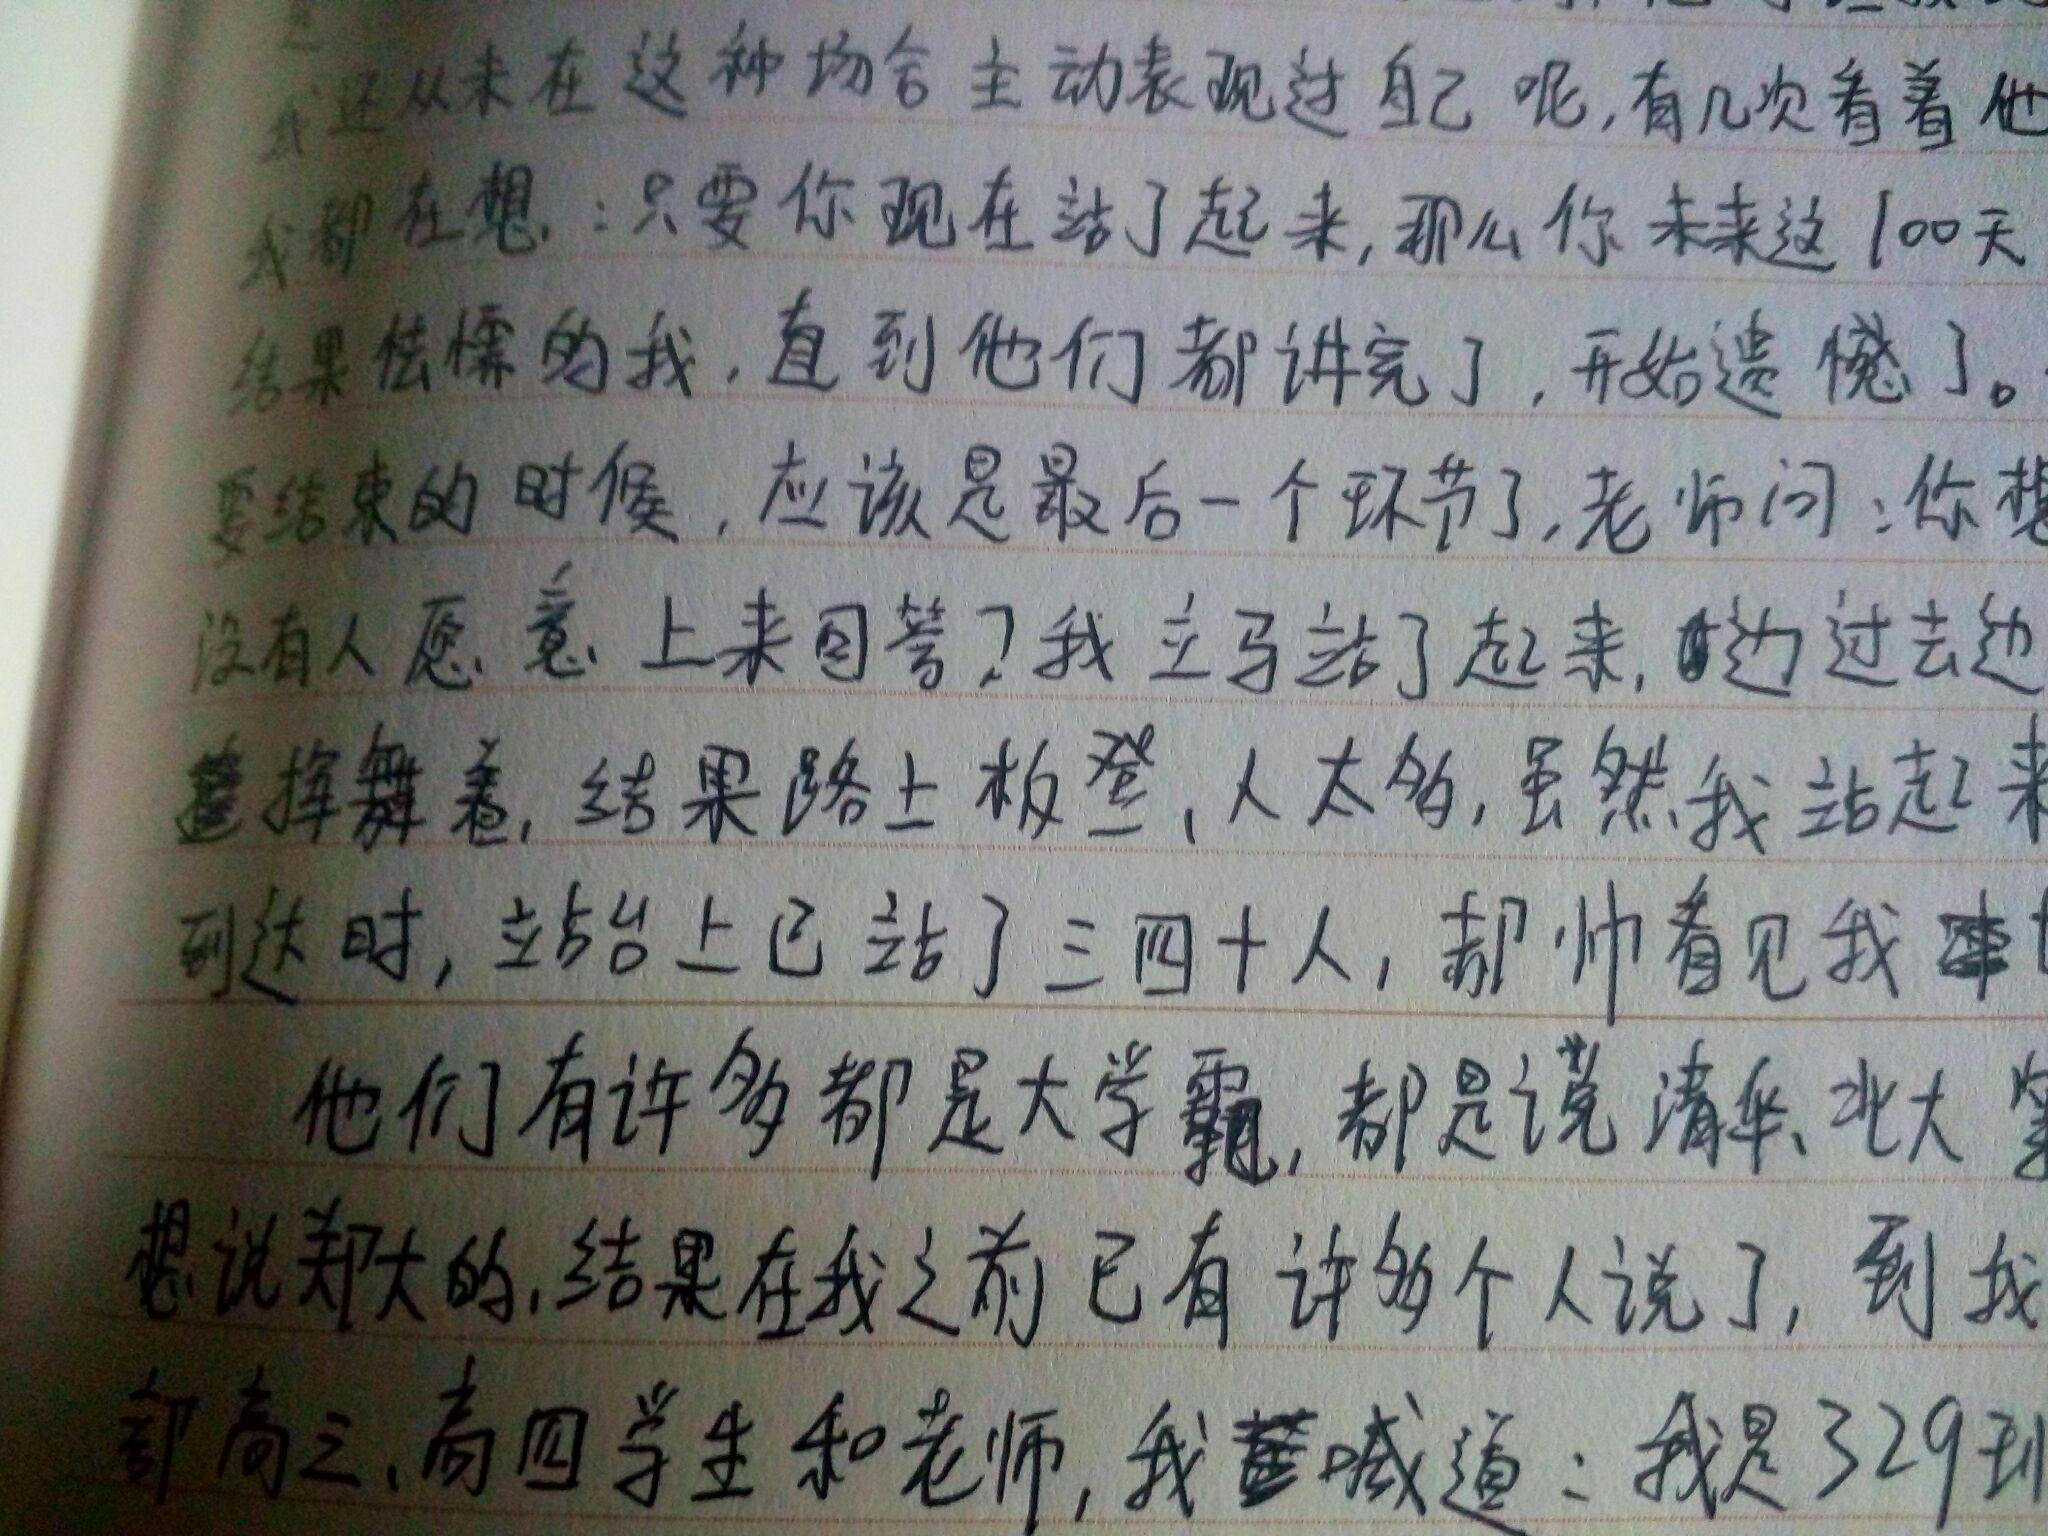 我还从未在这种场合主动表现过自己呢,有几次看着他
我都在想:只要你现在站了起来,那么你未来这100天
结果怯懦的我,直到他们都讲完了,开始遗憾了。
要结束的时候,应该是最后一个环节了,老师问:你想
没有人愿意上来回答?我立马站了起来,边过去边
挥舞着,结果路上板登、人太多,虽然我站起来
到达时,站台上已站了三四十人,郝帅看见我
他们有许多都是大学霸,都是说清华、北大等
想说郑大的,结果在我之前已有许多个人说了,到我
部高三、高四学生和老师,我喊道:我是329到